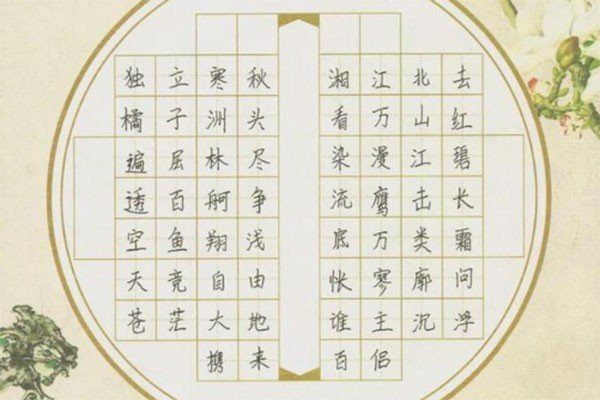 独立寒秋 湘江北去
橘子洲头 看万山红
遍层林尽 染漫江碧
透百舸争 流鹰击长
空鱼翔浅 底万类霜
天竞自由 怅寥廓问
苍茫大地 谁主沉浮
携来 百侣